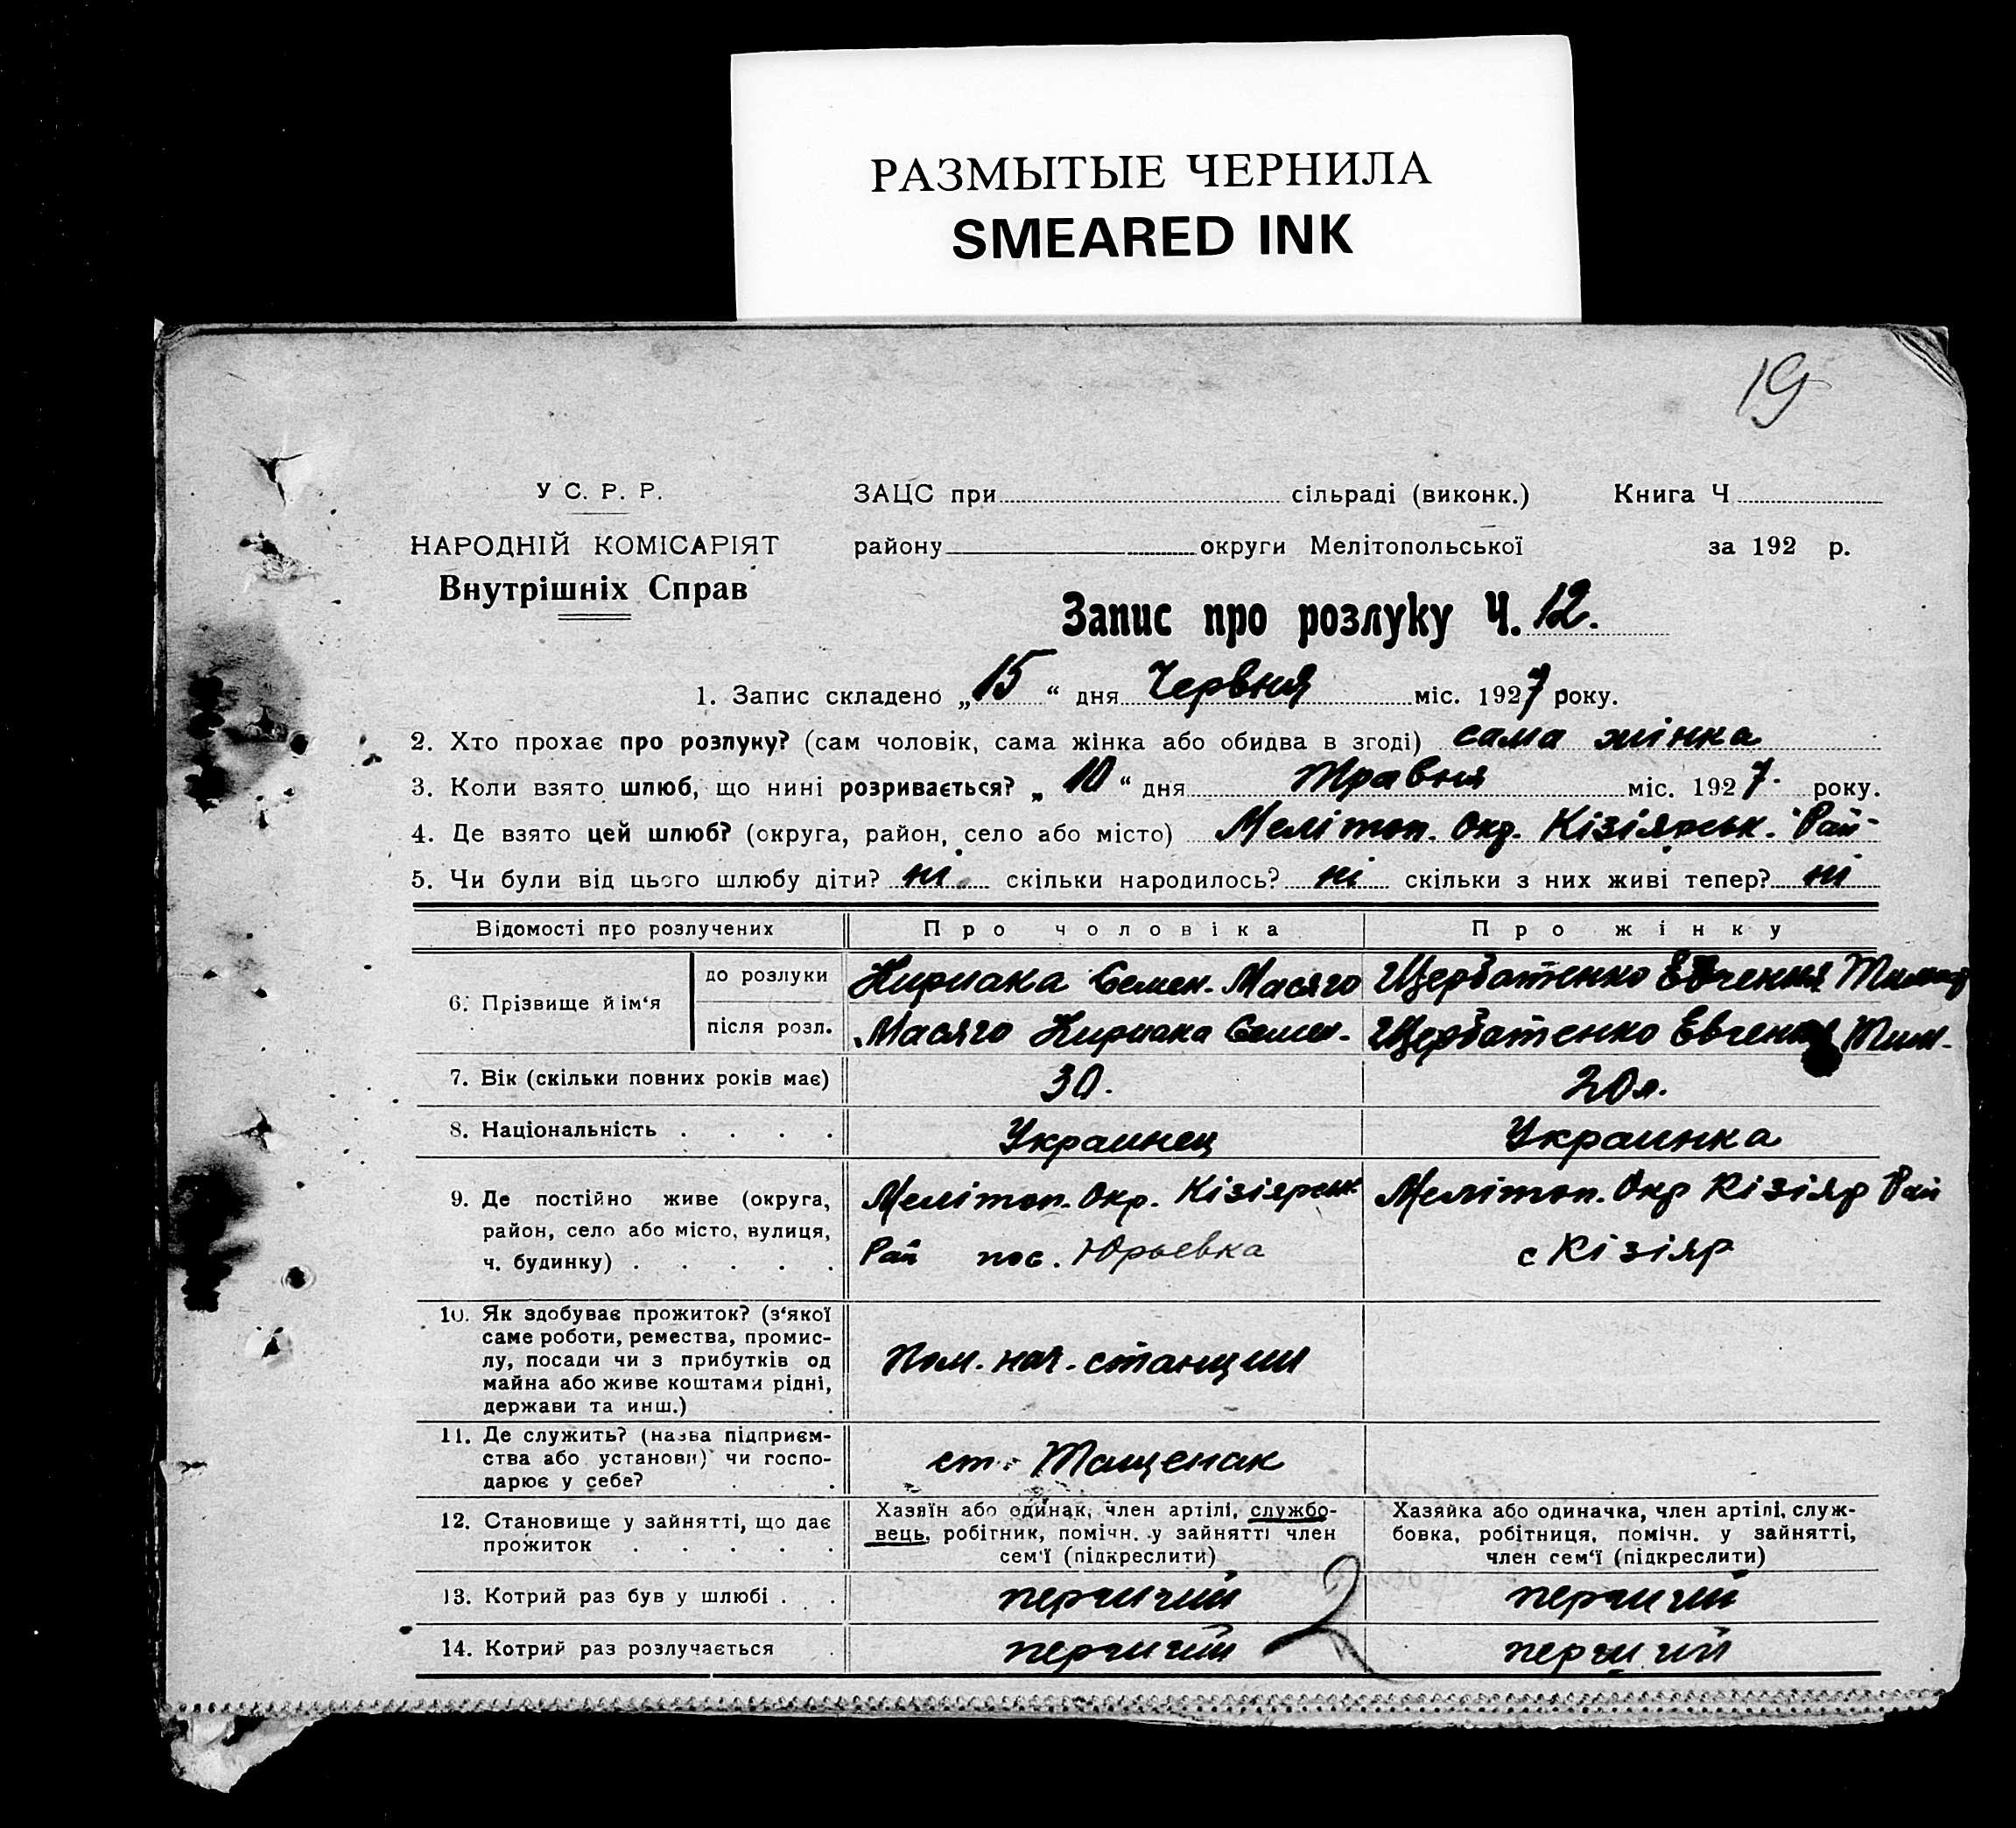 РАЗМЫТЫЕ ЧЕРНИЛА
SMEARED INK
19
У С. Р. Р.
НАРОДНІЙ КОМІСАРІЯТ
Внутрішніх Справ
ЗАЦС при сільраді (виконк.) Книга Ч
району округи Мелітопольської за 192 р.
Запис про розлуку Ч. 12.
1. Запис складено „15“ дня Червня міс. 1927 року.
2. Хто прохає про розлуку? (сам чоловік, сама жінка або обидва в згоді) сама жінка
3. Коли взято шлюб, що нині розривається? „10“ дня Травня міс. 1927. року.
4. Де взято цей шлюб? (округа, район, село або місто) Мелітоп. Окр. Кізіярськ. Рай-
5. Чи були від цього шлюбу діти? ні скільки народилось? ні скільки з них живі тепер? ні
Відомості про розлучених Про чоловіка Про жінку
6. Прізвище й ім‘я
до розлуки Кириака Семен. Масяго Щербатенко Евгения
після розл. Масяго Кириака Семен. Щербатенко Евгения Тим.
7. Вік (скільки повних років має) 30. 20л.
8. Національність . . . . Украинец Украинка
9. Де постійно живе (округа, район, село або місто, вулиця, ч. будинку) . . . . .
Мелітоп. Окр. Кізіярськ Мелітоп. Окр Кізіяр Рай
Рай пос. Юрьевка с Кізіяр
10. Як здобуває прожиток? (з‘якої
саме роботи, ремества, промис-
лу, посади чи з прибутків од
майна або живе коштами рідні,
держави та инш.) .
Пом. нач. станции
11. Де служить? (назва підприєм-
ства або установи) чи госпо-
дарює у себе? . . .
ст. Тащенак
12. Становище у зайнятті, що дає
прожиток . . . . .
Хазяїн або одинак, член артілі, службо-
вець, робітник, помічн. у зайнятті член
сем‘ї (підкреслити)
Хазяйка або одиначка, член артілі, служ-
бовка, робітниця, помічн. у зайнятті,
член сем‘ї (підкреслити)
13. Котрий раз був у шлюбі . . . перший перший
2
14. Котрий раз розлучається . перший перший